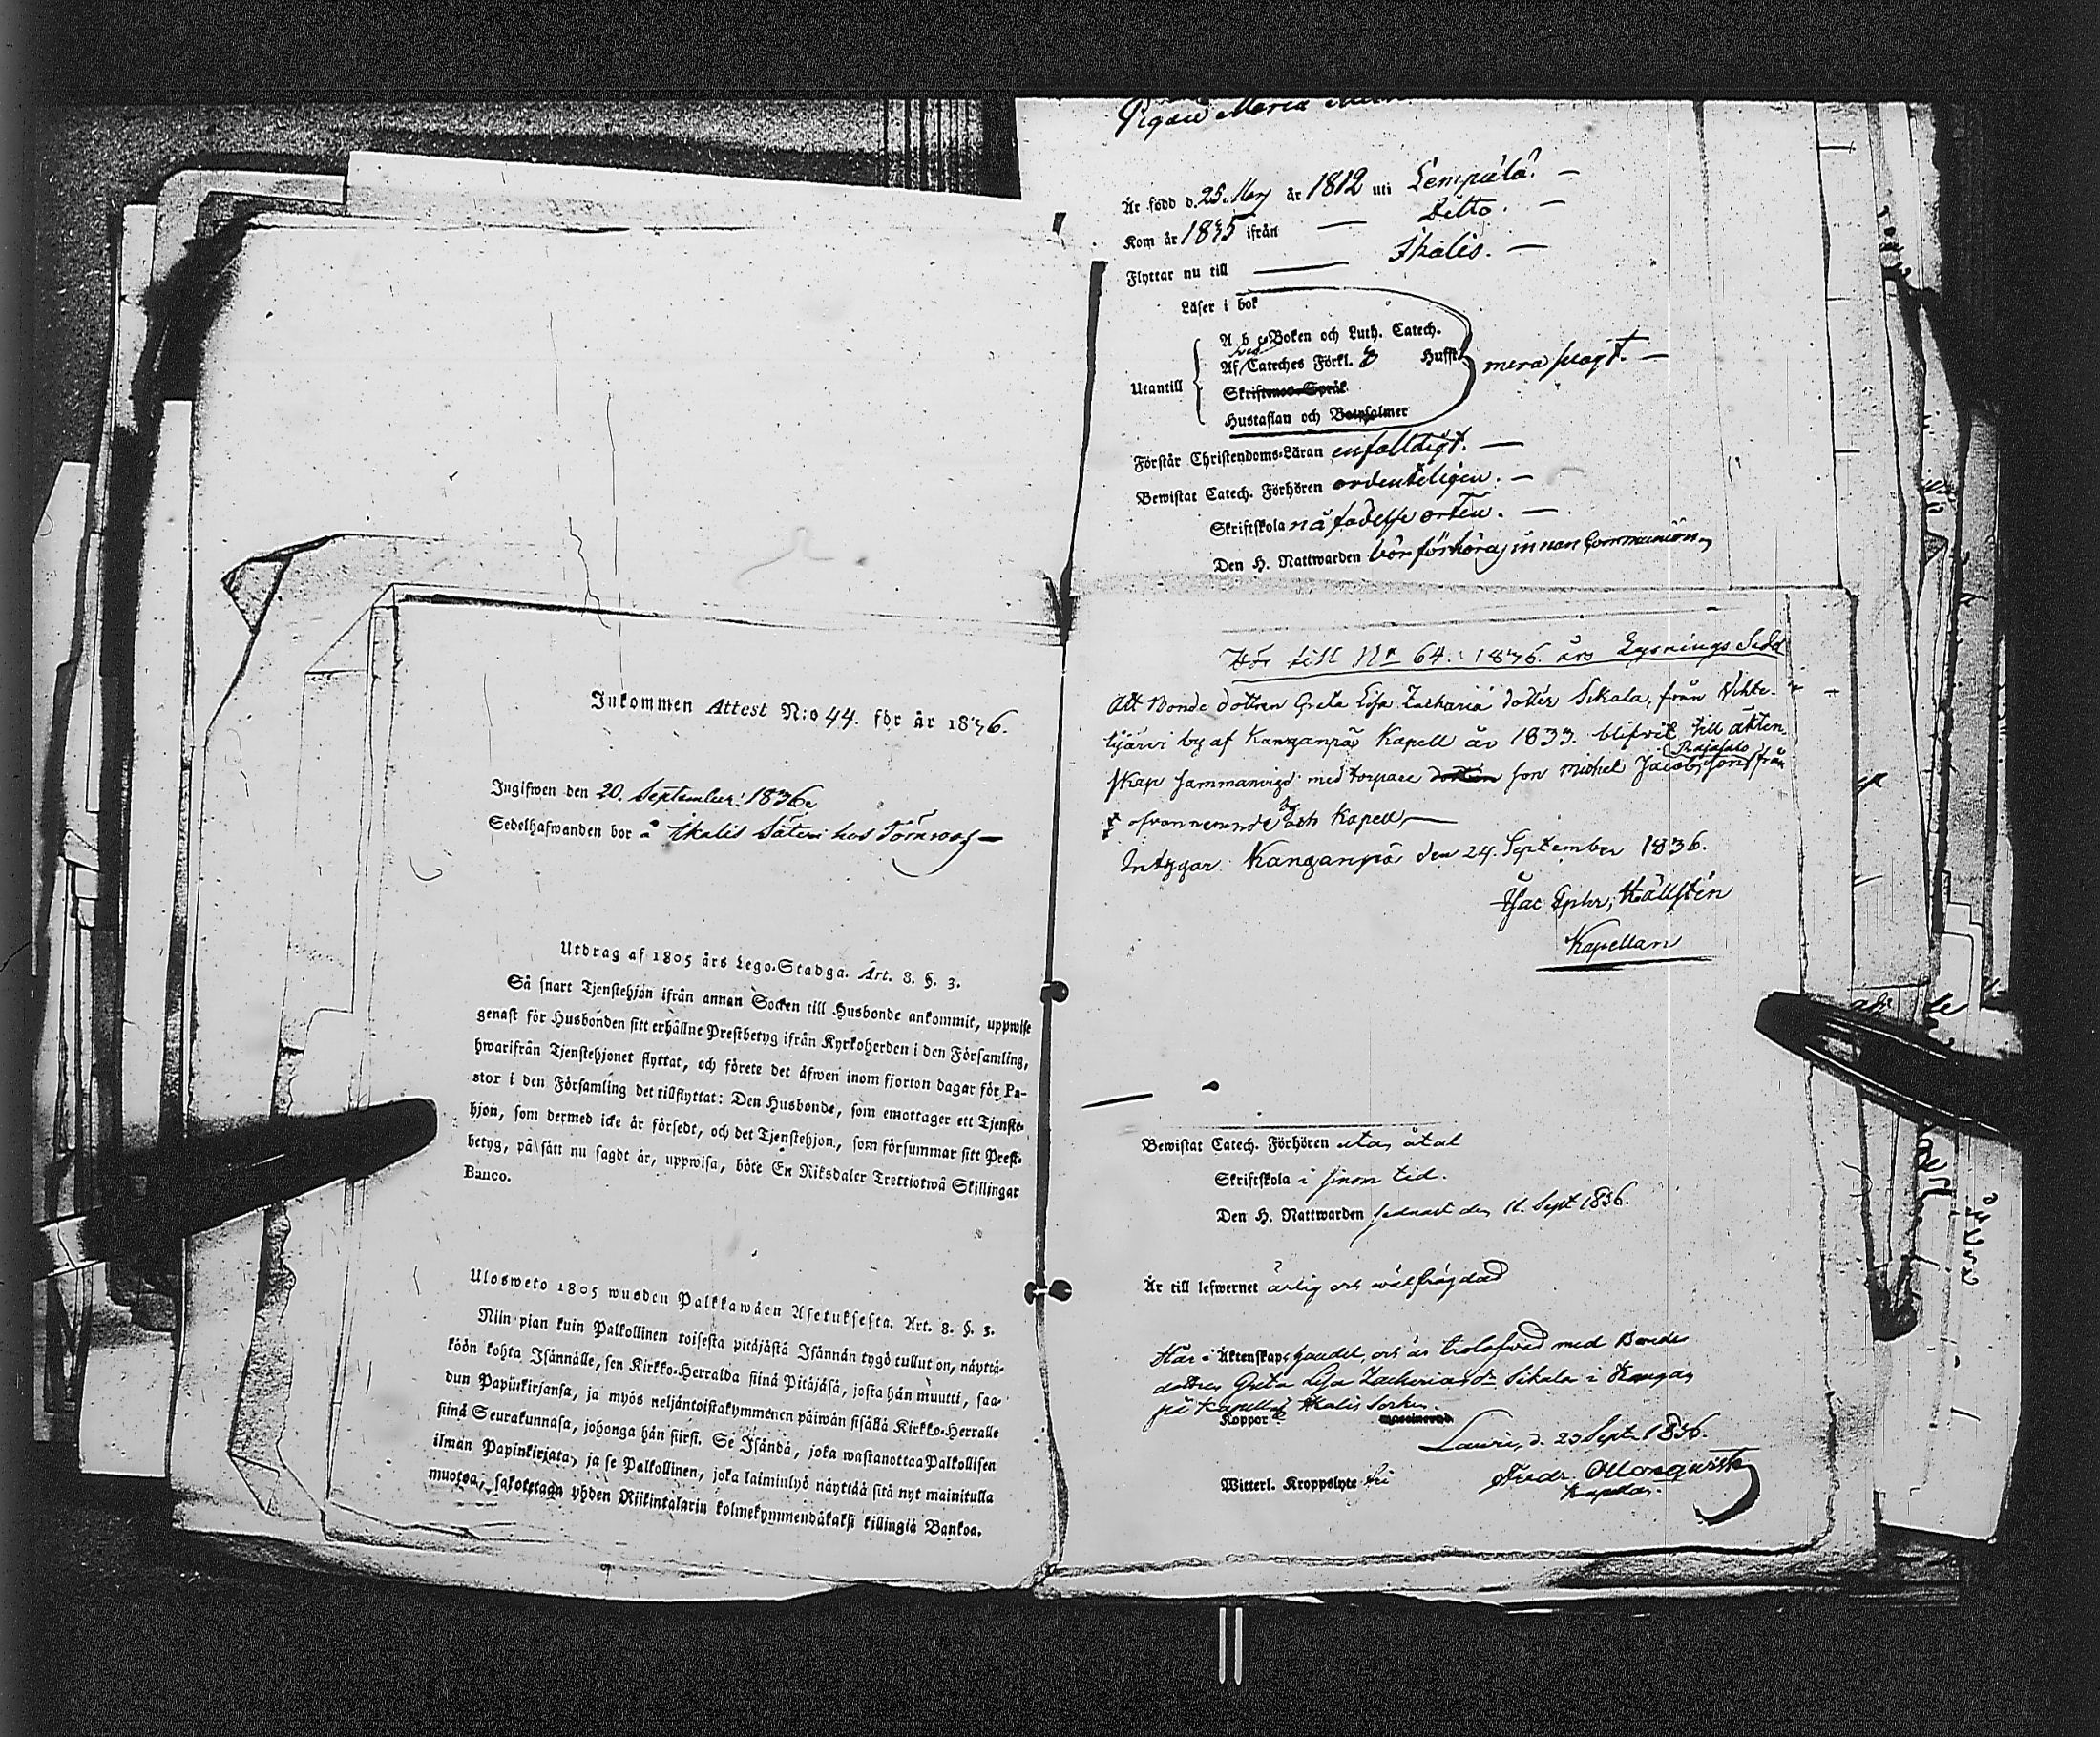 Inkommen Attest N:o 44. för år 1836.
Ingifwen den 20. September 1836.
Sedelhafwanden bor å Ikalis Säteri hos
Utdrag af 1805 års Lego-Stadga. Art. 8. §. 3.
Så snart Tjenstehjon ifrån annan Socken till Husbonde ankommit, uppwise
genast för Husbonden sitt erhållne Prestbetyg ifrån Kyrkoherden i den Församling,
hwarifrån Tjenstehjonet flyttat, och förete det äfwen inom fjorton dagar för Pa-
stor i den Församling det tillflyttat: Den Husbonde, som emottager ett Tjenste-
hjon, som dermed icke är försedt, och det Tjenstehjon, som försummar sitt Prest-
betyg, på sätt nu sagdt är, uppwisa, böte En Riksdaler Trettiotwå Skillingar
Banco.
Ulosweto 1805 wuoden Palkkawäen Asetuksesta. Art. 8. §. 3.
Niin pian kuin Palkollinen toisesta pitäjästä Isännän tygö tullut on, näyttä-
köön kohta Isännälle, sen Kirkko-Herralda siinä Pitäjäsä, josta hän muutti, saa-
dun Papinkirjansa, ja myös neljäntoistakymmenen päiwän sisällä Kirkko-Herralle
siinä Seurakunnasa, johonga hän siirsi. Se Isändä, joka wastanottaa Palkollisen
ilman Papinkirjata, ja se Palkollinen, joka laiminlyö näyttää sitä nyt mainitulla
muotoa, sakotetaan yhden Riikintalarin kolmekymmendäkaksi killingiä Bankoa.
Pigan Maria
Är född d. 25. Maj år 1812 uti Lempälä. —
Kom år 1835 ifrån — Ditto. —
Flyttar nu till — Ikalis. —
Läser i bok
A b c-Boken och Luth. Catech.
Af Cateches Förkl. Husst.
Utantill mera svagt. —
Skriftenes-Språk
Hustaflan och Botpsalmer
Förstår Christendoms-Läran enfalldigt. —
Bewistat Catech. Förhören ordenteligen. —
Skriftskola å födelse orten. —
Den H. Nattwarden bör förhöras innan Communion
Hör till No 64. 1836. års Lysnings Sedel
Att Bonde dottren Greta Lisa Zacharia dotter Sikala, från
by af Kanganpää Kapell år 1833. blifvit till äkten
Rajasalo
skap sammanvigd med torpare son Michel Jacobsson från
by
ofvannemnde och Kapell, —
Intygar Kanganpää den 24. September 1836.
Isac Ephr. Källstén
Kapellan
Bewistat Catech. Förhören utan åtal
Skriftskola i sinom tid.
Den H. Nattwarden sednast den 11. Sept 1836.
Är till lefwernet ärlig och wälfrägdad
Står i Äktenskaps handel, och är trolofwad med Bonde
dottren Greta Lisa Zachariasdr Sikala i Kangan
pä Kapell af Ikalis Socken.
Koppor
Lauri, d. 23 Sept. 1836.
Witterl. Kroppslyte fri
Fredr.
Kapellan.